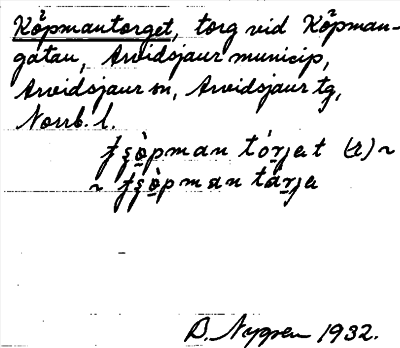 Köpmantorget, torg vid Köpman-
gatan, Arvidsjaur municip,
Arvidsjaur sn, Arvidsjaur tg,
Norrb. l.
ʄʂò̱pman tórjat (2) ~
~ ʄʂò̱pman tárja
B. Nygren 1932.